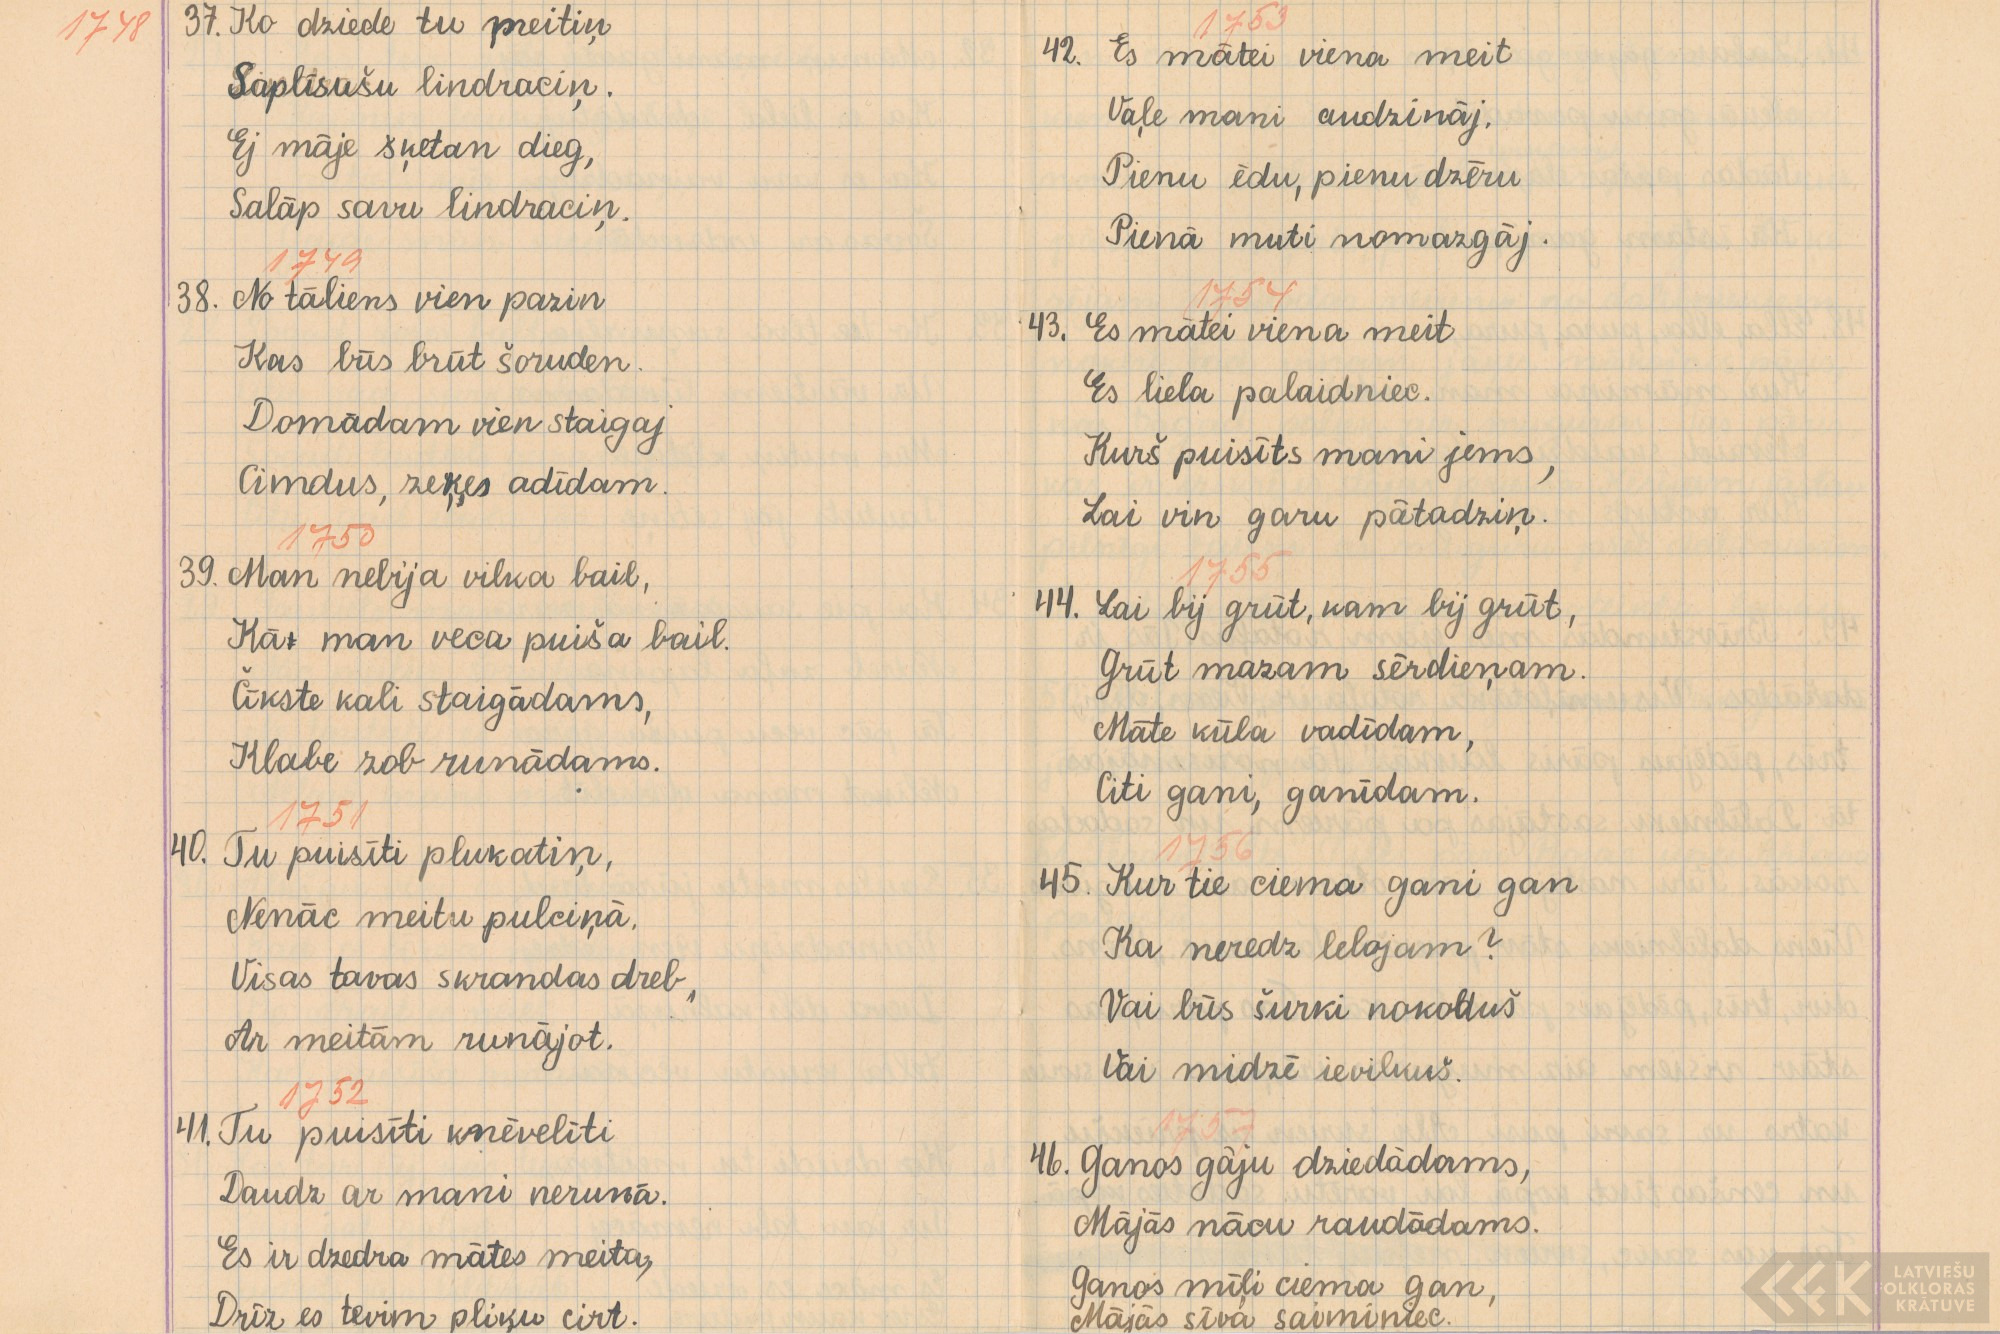 1748
37. Ko dziede tu meitiņ
Saplīsušu lindraciņ.
Ej māje šķetan dieg,
Salāp savu lindraciņ.
1749
38. No tāliens vien pazin
Kas būs brūt šoruden.
Domādam vien staigaj
Cimdus, zeķes adīdam.
1750
39. Man nebija vilka bail,
Kā man veca puiša bail.
Čīkste kali staigādams,
Klabe zob runādams.
1751
40. Tu puisīti plukatiņ,
Nenāc meitu pulciņā.
Visas tavas skrandas dreb,
Ar meitām runājot.
1752
41. Tu puisīti knēvelīti
Daudz ar mani nerunā.
Es ir dzedra mātes meita,
Drīz es tevim pliķu cirt.
1753
42. Es mātei viena meit
Vaļe mani audzināj.
Pienu ēdu, pienu dzēru
Pienā muti nomazgāj.
1754
43. Es mātei viena meit
Es liela palaidniec.
Kurš puisīts mani jems,
Lai vin garu pātadziņ.
1755
44. Lai bij grūt, kam bij grūt,
Grūt mazam sērdieņam.
Māte kūla vadīdam,
Citi gani, ganīdam.
1756
45. Kur tie ciema gani gan
Ka neredz lelojam?
Vai būs šurki nokoduš
Vai midzē ievilkuš.
1757
46. Ganos gāju dziedādams,
Mājās nācu raudādams.
Ganos mīļi ciema gan,
Mājās sīva saiminiec.
LATVIEŠU
FOLKLORAS
KRĀTUVE